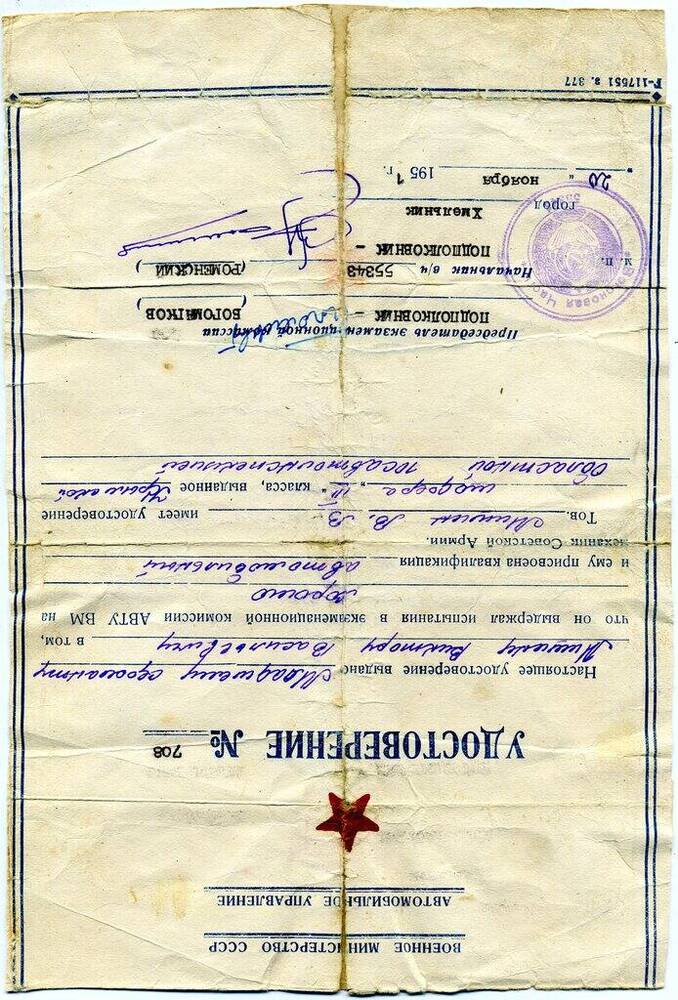 ВОЕННОЕ МИНИСТЕРСТВО СССР
АВТОМОБИЛЬНОЕ УПРАВЛЕНИЕ
УДОСТОВЕРЕНИЕ № 708
Настоящее удостоверение выдано Младшему сержанту
Виктору Васильевичу в том,
что он выдержал испытания в экзаменационной комиссии АВТУ ВМ на
хорошо
и ему присвоена квалификация автомобильный
механик Советской Армии.
Тов. В. В. имеет удостоверение
шофера „III“ класса, выданное
областной госавтоинспекцией
Председатель экзаменационной комиссии
ПОДПОЛКОВНИК – (БОГОМЯГКОВ)
Начальник в/ч 55343
ПОДПОЛКОВНИК – (РОМЕНСКИЙ)
М. П.
город Хмельник
„20“ ноября 1951 г.
Г-117551 з. 377